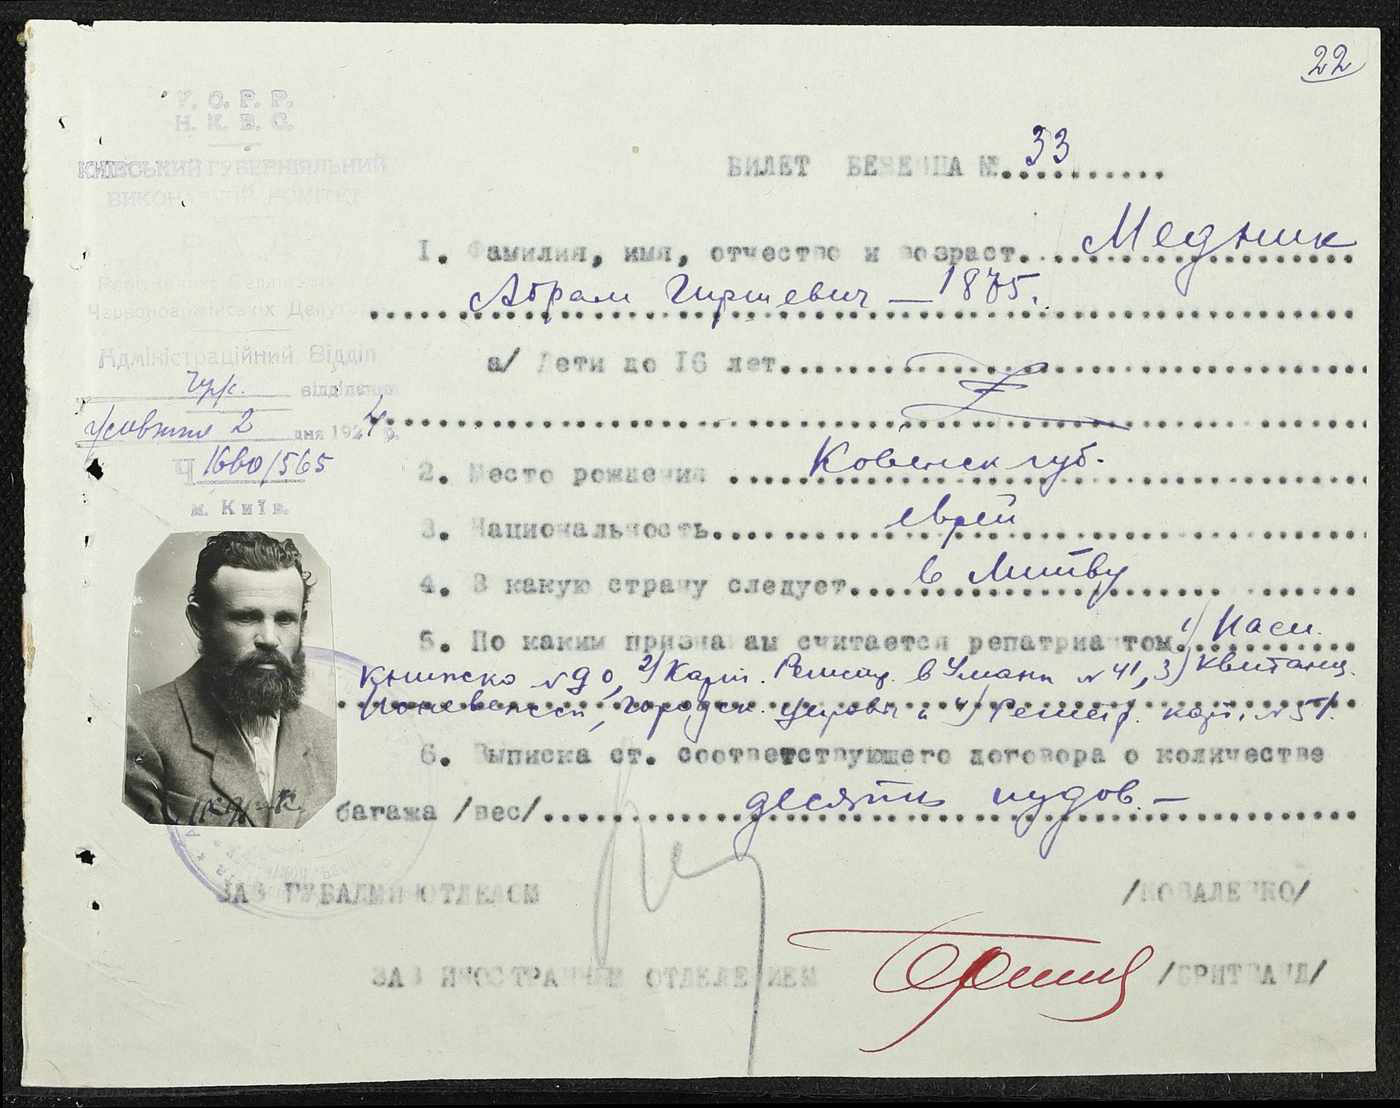 22
У. С. Р. Р.
Н. К. В. С.
КИЇВСЬКИЙ ГУБЕРНІЯЛЬНИЙ
ВИКОНАВЧИЙ КОМІТЕТ
Червоноармійських Депут
Адміністраційний Відділ
відділення
2 дня 1924 р.
Ч 1660/565
м. Київ.
БИЛЕТ БЕЖЕНЦА №. 33
1. Фамилия, имя, отчество и возраст. Медник
Абрам Гиршевич — 1875.
а/ Дети до 16 лет
2. Место рождения Ковенск губ.
3. Национальность еврей
4. В какую страну следует в Литву
5. По каким признакам считается репатриантом. 1) Пасп.
книжка № 90, 2) Карт. Регистр. в Умани № 41, 3) квитанц.
Поневежск. Городск. управы и 4) Регистр. карт. № 51.
6. Выписка ст. соответствующего договора о количестве
багажа /вес/ десять пудов. —
ЗАВ ГУБАДМИНОТДЕЛОМ /КОВАЛЕНКО/
ЗАВ ИНОСТРАННЫМ ОТДЕЛЕНИЕМ /БРИТВАНД/